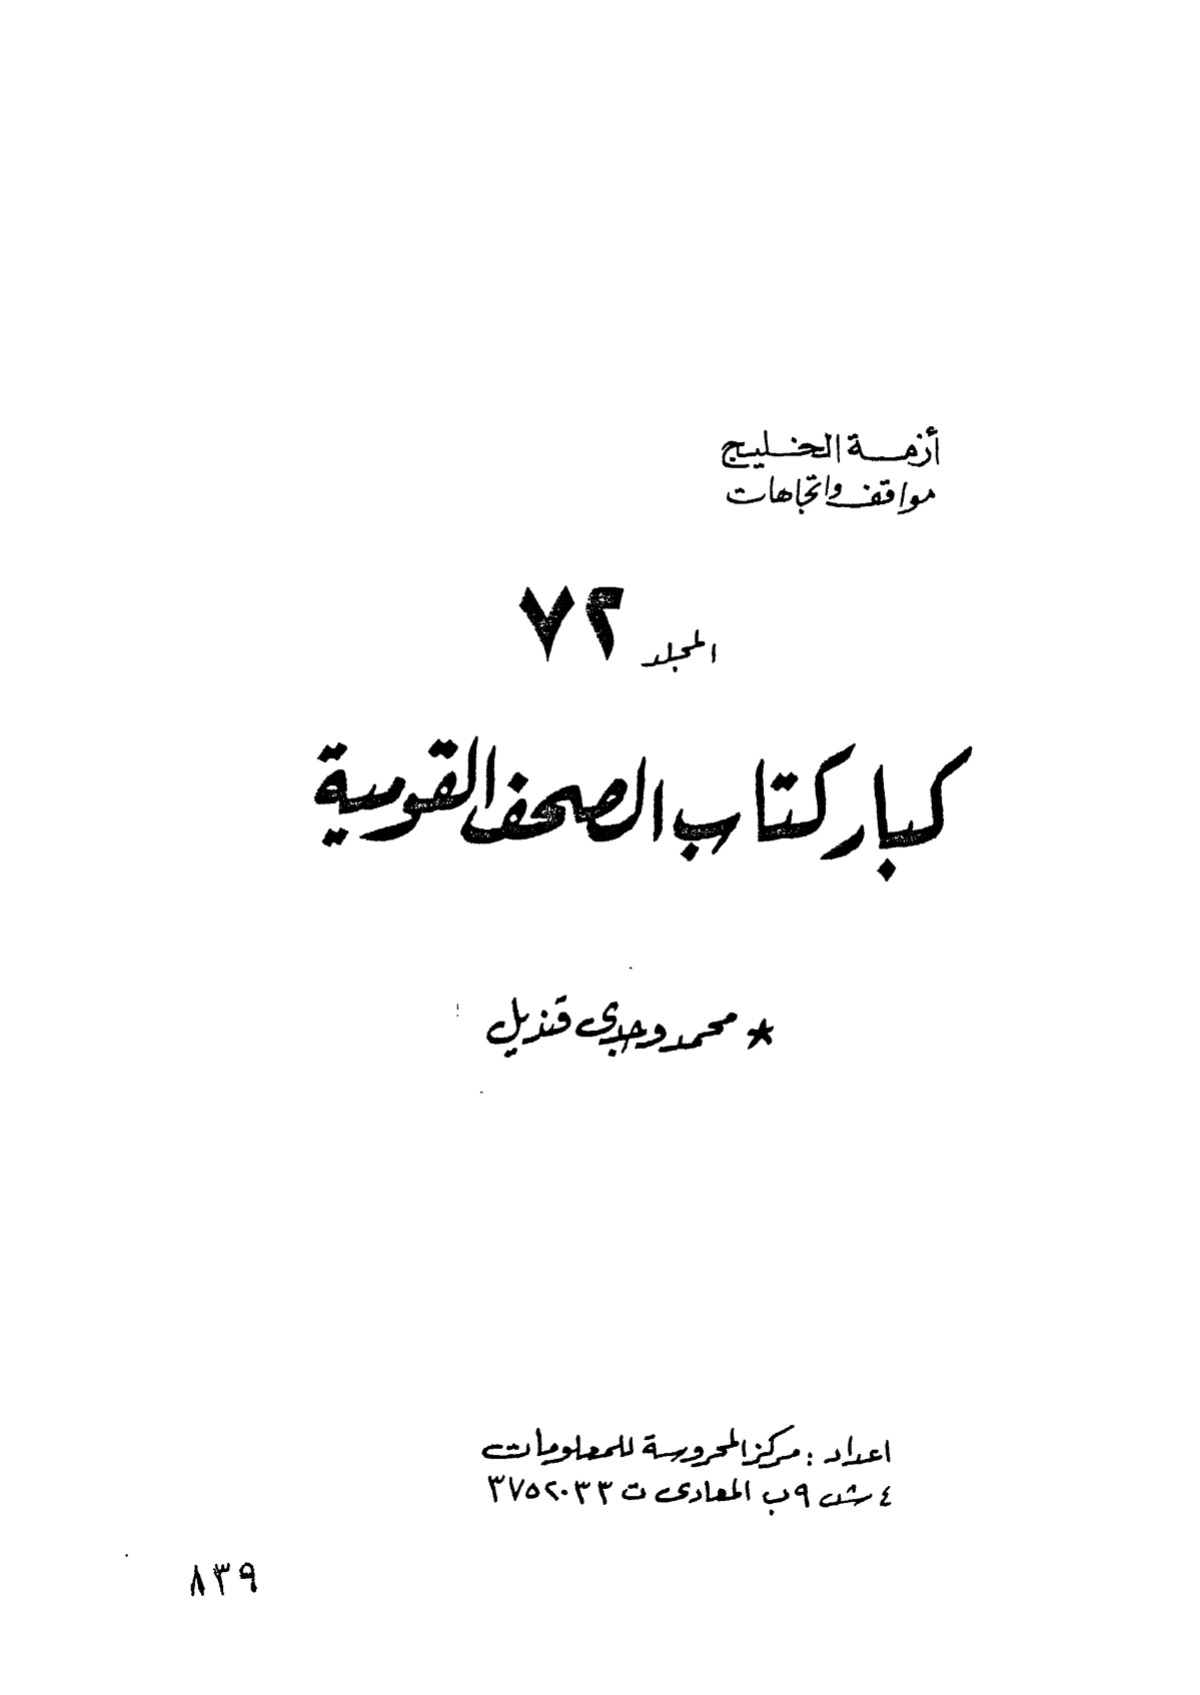 أزمة الخليج
مواقف واتجاهات
المجلد ٧٢
كبار كتاب الصحف القومية
* محمد وجدى قنديل
اعداد : مركز المحروسة للمعلومات
٤ ش ٩ب المعادى ت ٣٧٥٢٠٣٣
٨٣٩